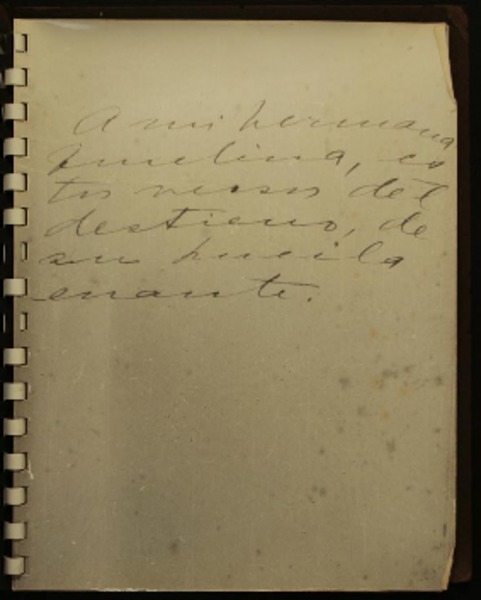 A mi hermana
Emelina, es
tos versos del
destierro, de
su
errante.